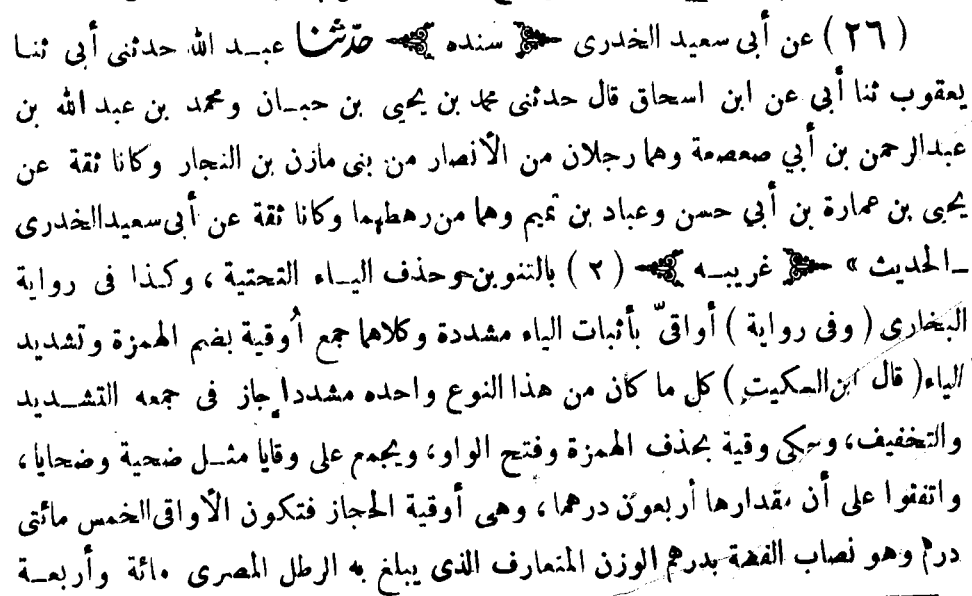 ( ٢٦ ) عن أبى سعيد الخدرى ﴿ سنده ﴾ حدّثنا عبـد الله حدثنى أبى ثنـا
يعقوب ثنا أبي عن ابن اسحاق قال حدثنى محمد بن يحيى بن حبـان ومحمد بن عبد الله بن
عبدالرحمن بن أبي صعصعة وهما رجلان من الأنصار من بنى مازن بن النجار وكانا ثقة عن
يحيى بن عمارة بن أبي حسن وعباد بن تميم وهما من رهطهما وكانا ثقة عن أبى سعيدالخدرى
ـالحديث » ﴿ غريبـه ﴾ ( ٢ ) بالتنوين وحذف اليـاء التحتية ، وكـذا فى رواية
البخارى ( وفى رواية ) أواقىّ بأثبات الياء مشددة وكلاهما جمع أوقية بضم الهمزة وتشديد
الياء ( قال ابن السكيت ) كل ما كان من هذا النوع واحده مشددا جاز فى جمعه التشـديد
والتخفيف، وحكى وقية بحذف الهمزة وفتح الواو، ويجمع على وقايا مثـل ضحية وضحايا،
واتفقوا على أن مقدارها أربعون درهما ، وهى أوقية الحجاز فتكون الأواقى الخمس مائتى
درهم وهو نصاب الفضة بدرهم الوزن المتعارف الذى يبلغ به الرطل المصرى مائة وأربعـة